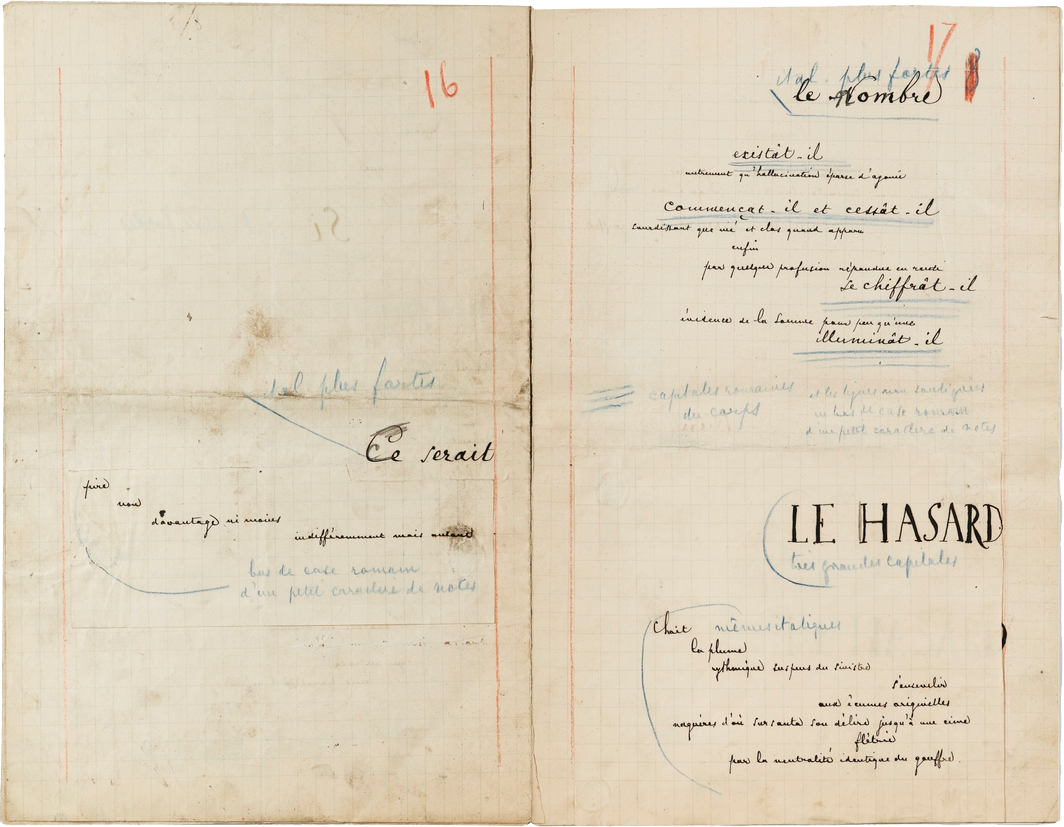 16
ital. plus fortes
Ce serait
pire
non
davantage ni moins
indifféremment mais autant
bas de case romain
d'un petit caractère de notes
17
ital. plus fortes
le Nombre
existât-il
autrement qu'hallucination éparse d'agonie
commençat-il et cessât-il
sourdissant que nié et clos quand apparu
enfin
par quelque profusion répandue en rareté
se chiffrât-il
évidence de la somme pour peu qu'une
illuminât-il
capitales romaines
du corps
et les lignes non soulignées
en bas de case romain
d'un petit caractère de notes
LE HASARD
très grandes capitales
Choit
mêmes italiques
la plume
rythmique suspens du sinistre
s'ensevelir
aux écumes originelles
naguères d'où sursauta son délire jusqu'à une cime
flétrie
par la neutralité identique du gouffre